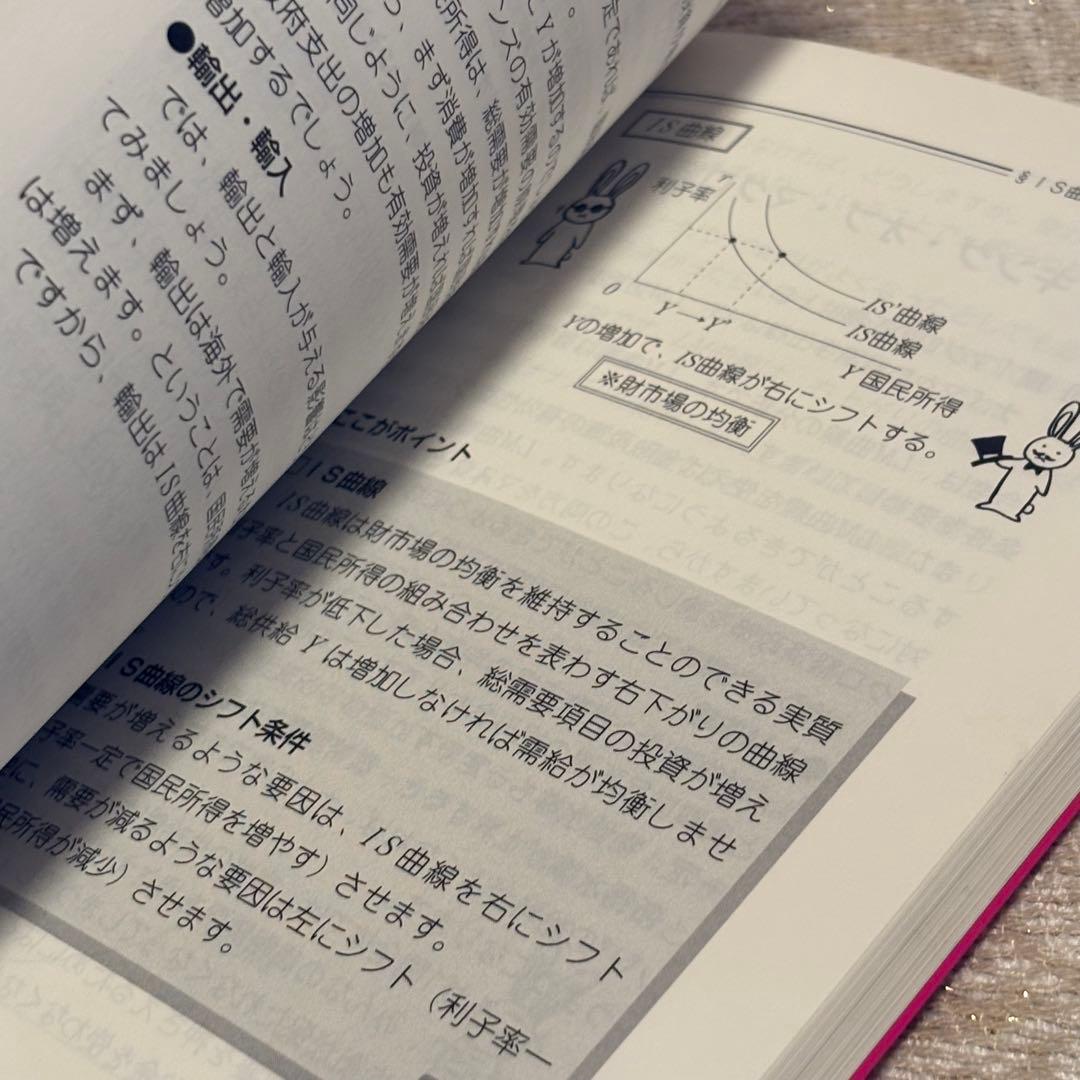 Yが増加するので、
ンズの有効需要の
民所得は、総需要が増加
ら、まず消費が増加すれば
同じように、投資が増えれば
政府支出の増加も有効需要が増え
増加するでしょう。
●輸出・輸入
では、輸出と輸入が与える影響
てみましょう。
まず、輸出は海外で需要が増える
は増えます。ということは、国民
ですから、輸出はIS曲線を右
§IS曲
IS曲線
r
利子率
0
Y→Y'
IS'曲線
IS曲線
Y 国民所得
Yの増加で、IS曲線が右にシフトする。
※財市場の均衡
ここがポイント
IS曲線
IS曲線は財市場の均衡を維持することのできる実質
子率と国民所得の組み合わせを表わす右下がりの曲線
す。利子率が低下した場合、総需要項目の投資が増え
ので、総供給Yは増加しなければ需給が均衡しませ
IS曲線のシフト条件
需要が増えるような要因は、IS曲線を右にシフト
子率一定で国民所得を増やす）させます。
に、需要が減るような要因は左にシフト（利子率一
民所得が減少）させます。